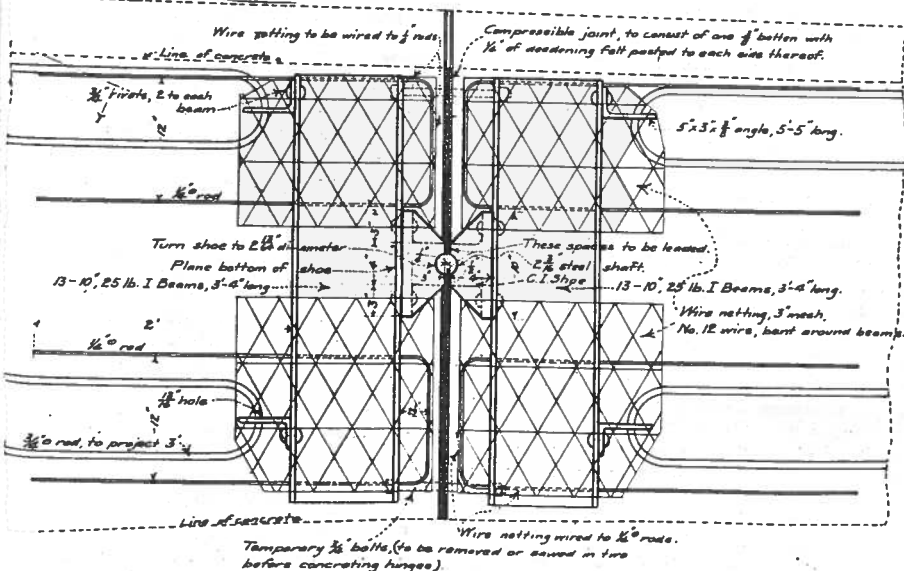 Wire netting to be wired to ½" rods
Compressible joint, to consist of one ½" batten with
⅛" of deadening felt pasted to each side thereof.
Line of concrete.
¾" rivets, 2 to each
beam
12"
5"x3"x⅜" angle, 5'-5" long.
rod
Turn shoe to diameter
These spaces to be leaded.
Plane bottom of shoe
steel shaft.
C.I. Shoe
13-10", 25 lb. I Beams, 3'-4" long
13-10", 25 lb. I Beams, 3'-4" long.
Wire netting, 3" mesh,
No. 12 wire, bent around beams.
2'
rod
hole
12"
rod, to project 3'
Line of concrete
Wire netting wired to rods.
Temporary bolts, (to be removed or sawed in two
before concreting hinges)